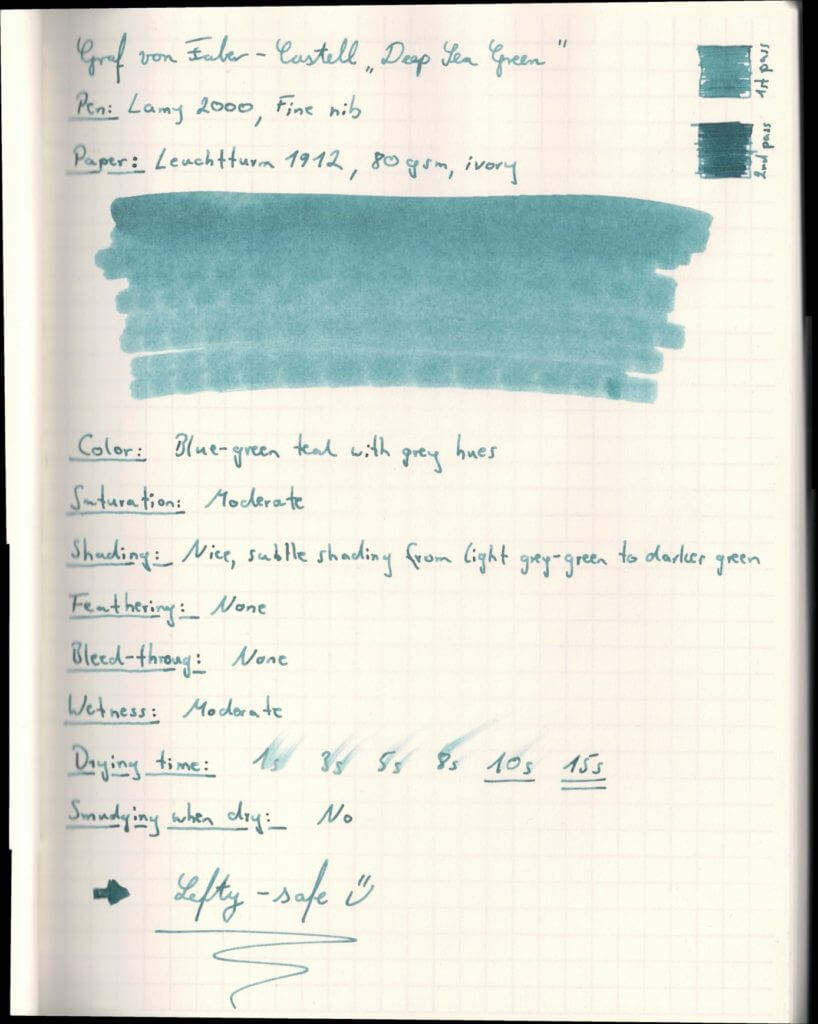 Graf von Faber-Castell „Deep Sea Green"
1st pass
Pen: Lamy 2000, Fine nib
2nd pass
Paper: Leuchtturm 1912, 80 gsm, ivory
Color: Blue-green teal with grey hues
Saturation: Moderate
Shading: Nice, subtle shading from light grey-green to darker green
Feathering: None
Bleed-throug: None
Wetness: Moderate
Drying time: 1s 3s 5s 8s 10s 15s
Smudying when dry: No
Lefty-safe